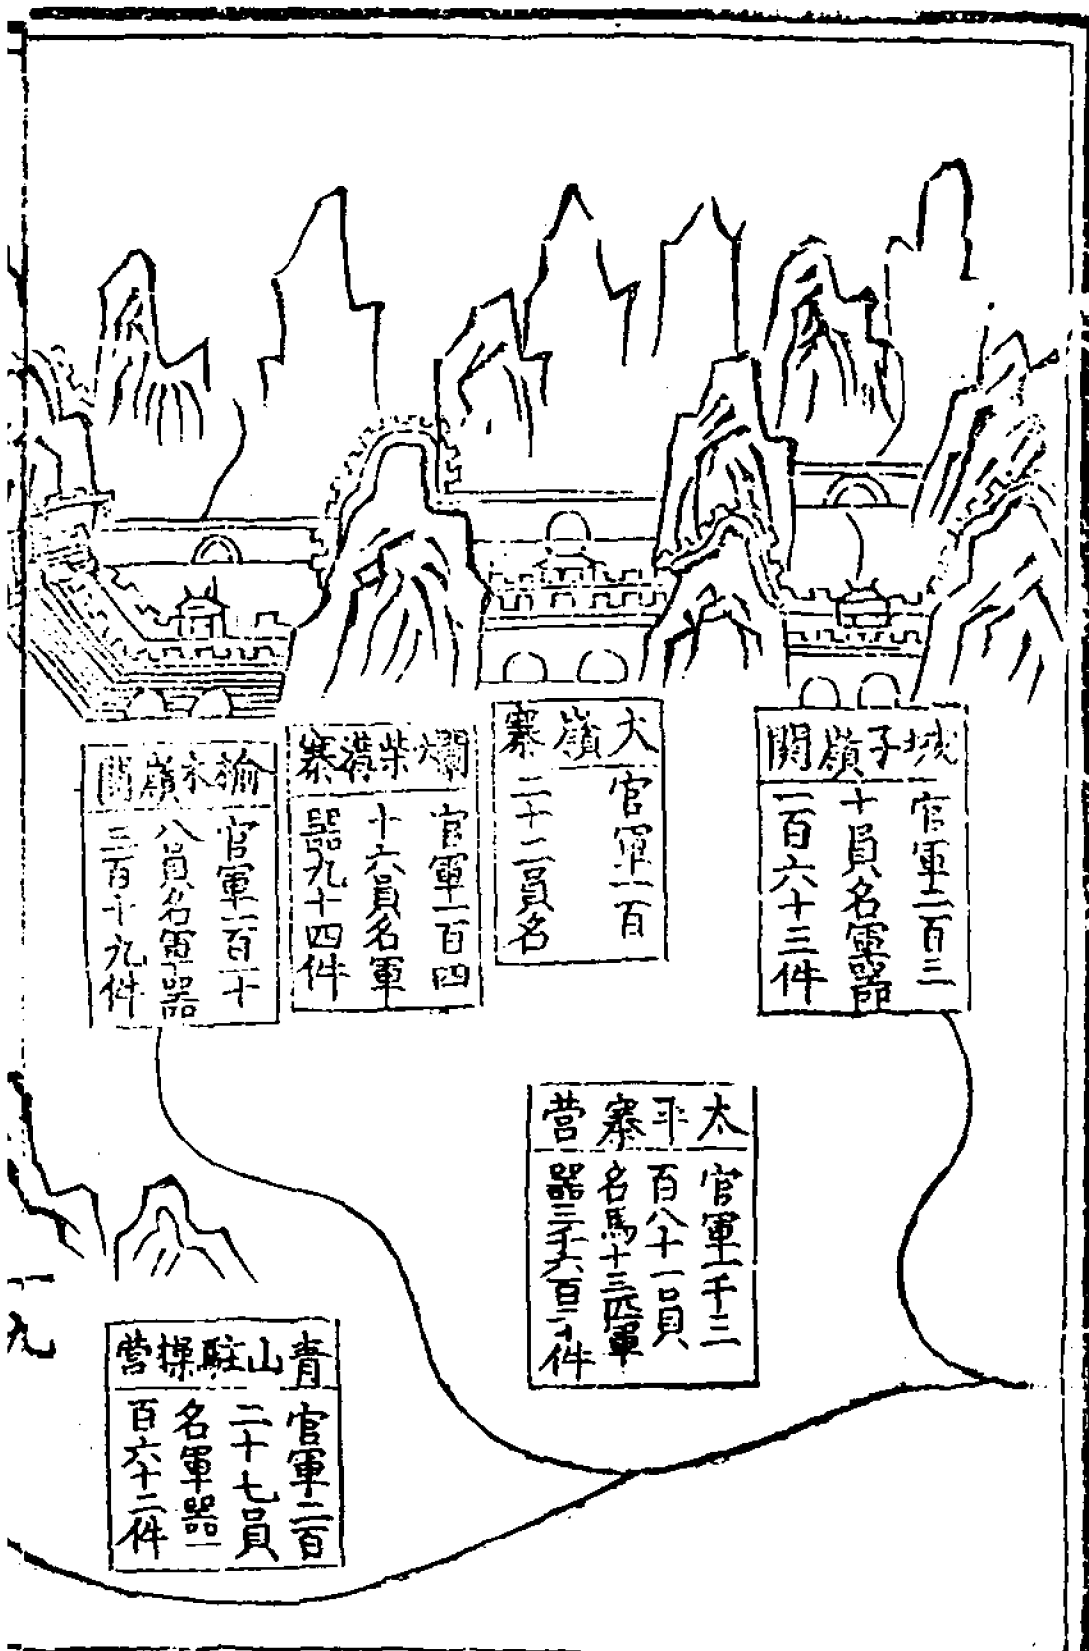 城子嶺關
官軍二百三
十員名軍器
一百六十三件
大嶺寨
官軍一百
二十二員名
爛柴溝寨
官軍一百四
十六員名軍
器九十四件
榆木嶺關
官軍一百十
八員名軍器
三百十九件
太平寨營
官軍一千三
百八十一員
名馬十三匹軍
器三千六百二十件
青山駐操營
官軍二百
二十七員
名軍器一
百六十二件
一九